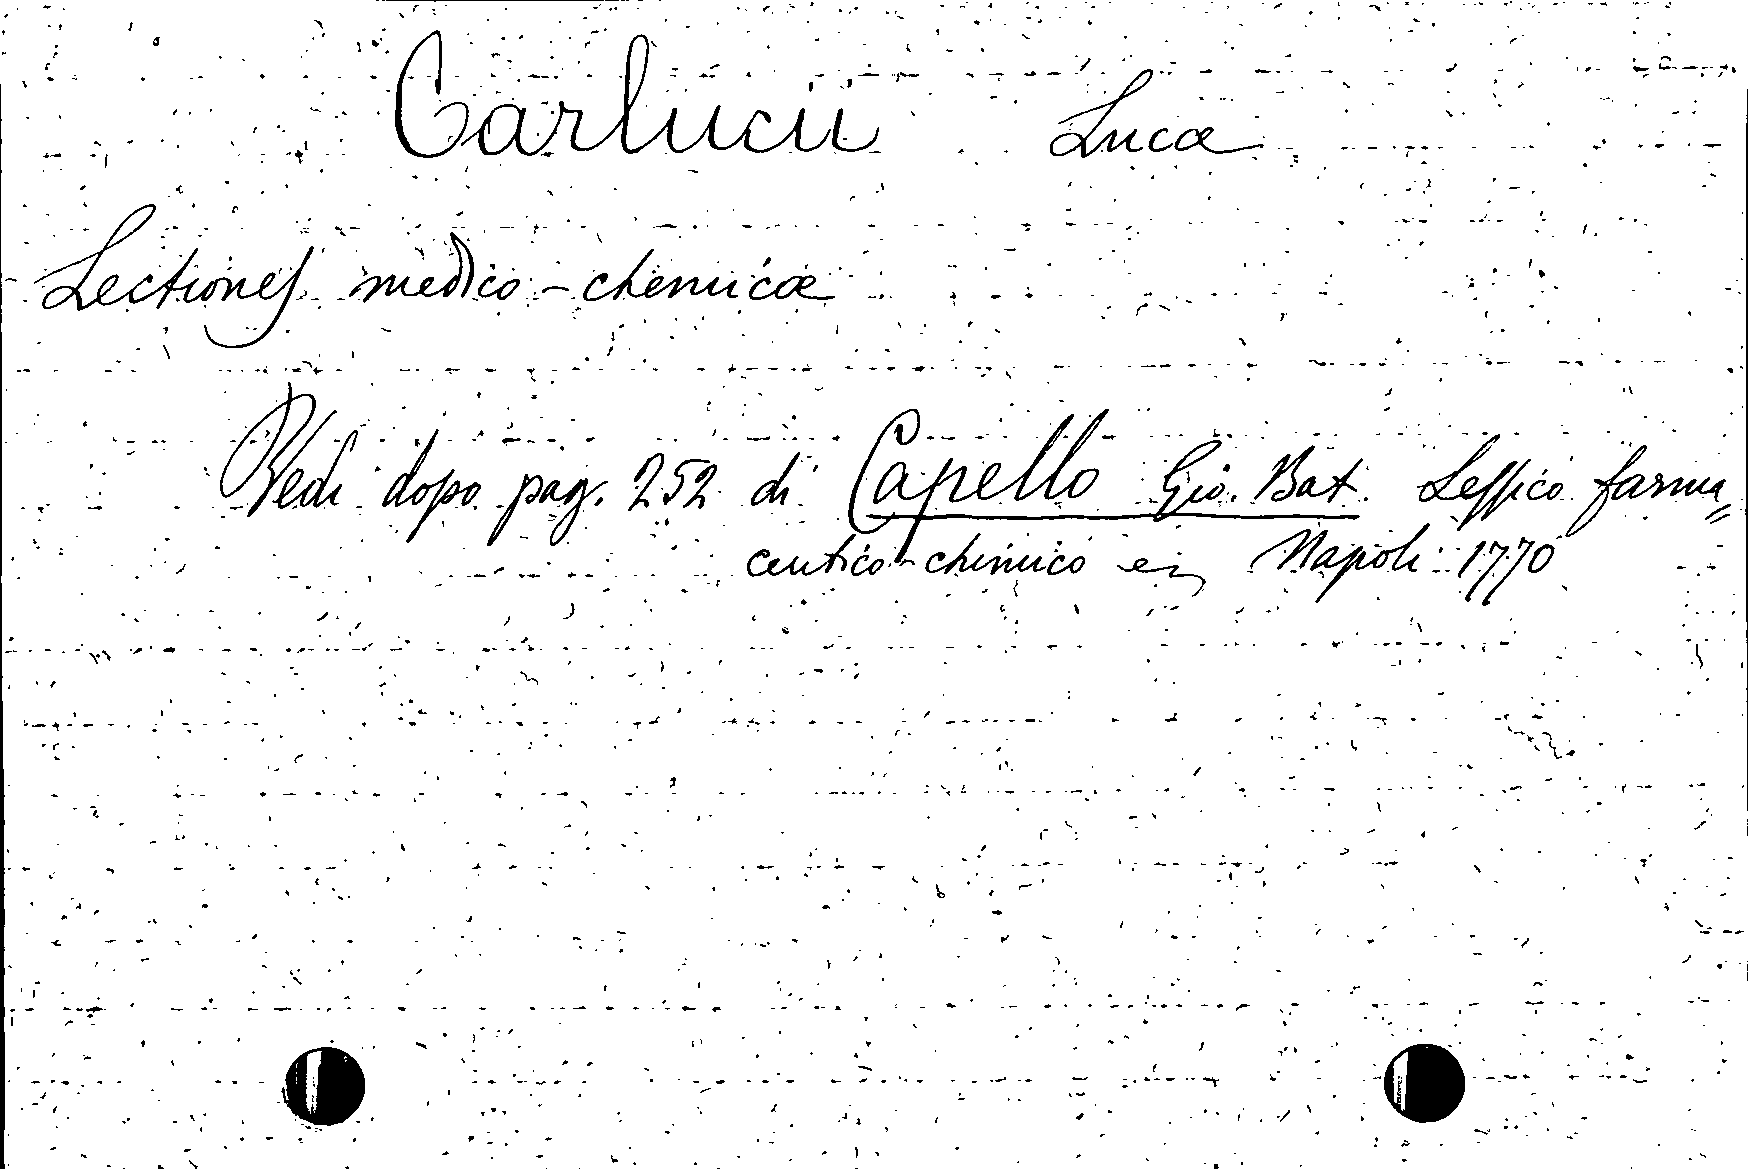 Carlucii Lucæ
Lectiones medico-chemicæ
Vedi dopo pag. 252 di Capello Gio. Bat. Lessico farma„
ceutico-chimico Napoli 1770